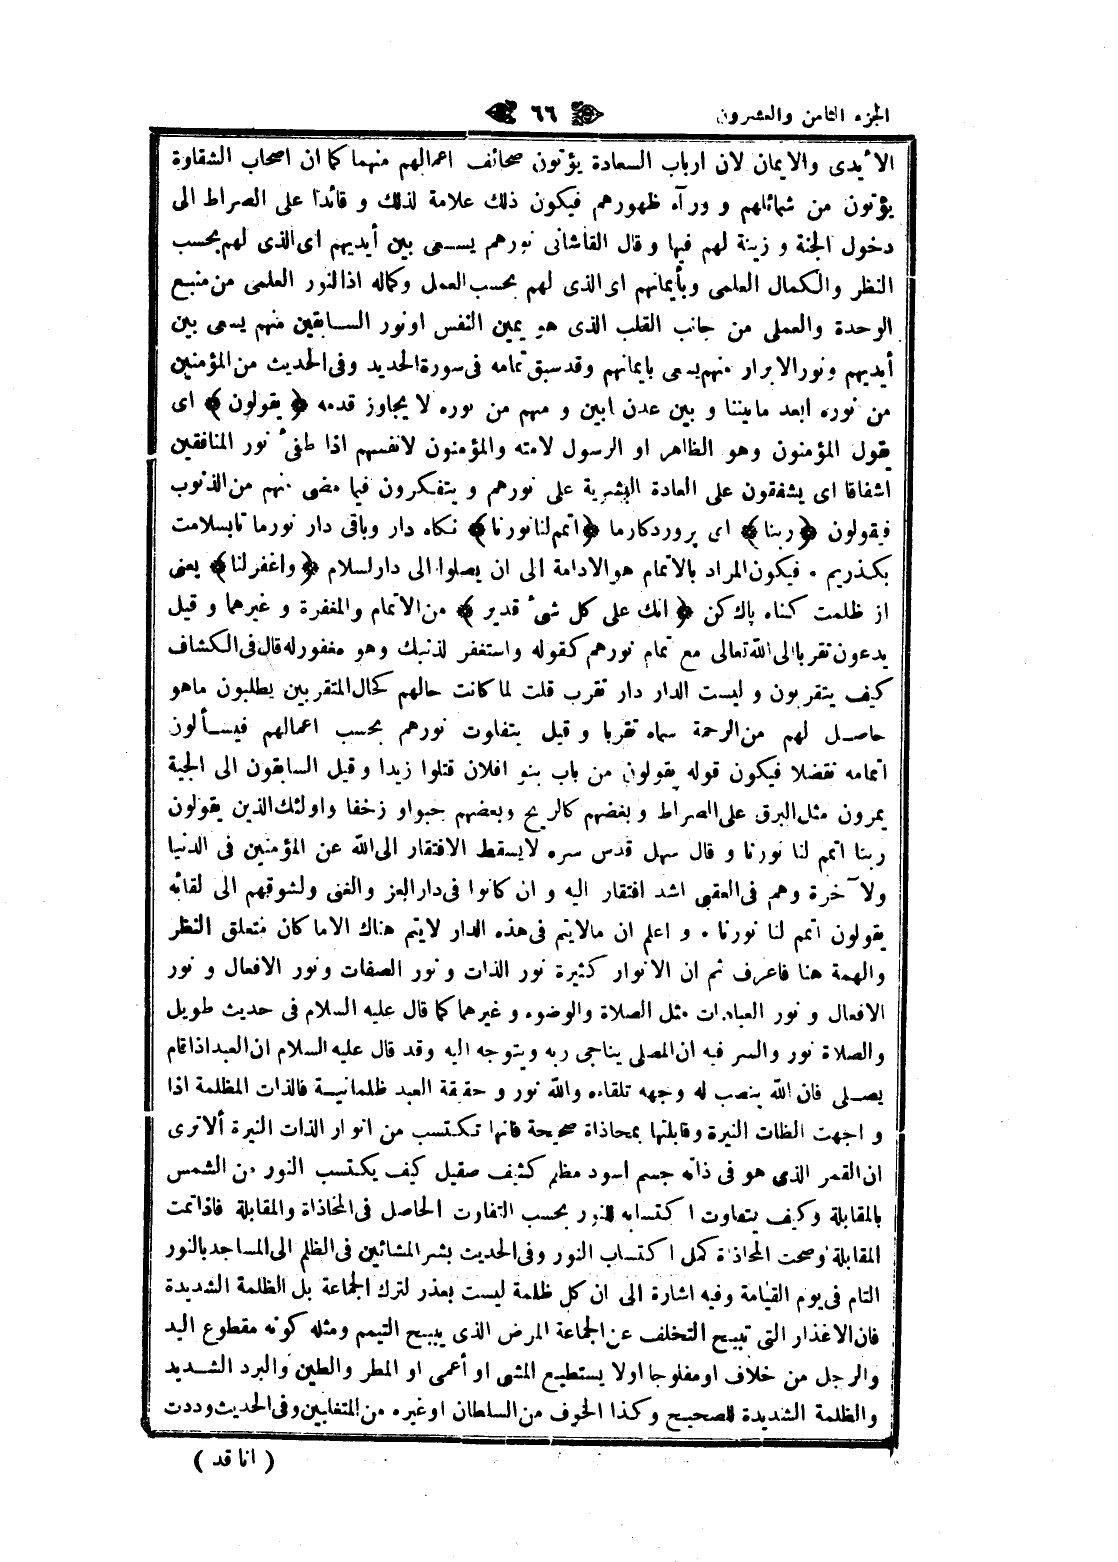 الجزء الثامن والعشرون ٦٦
الأيدى والايمان لان ارباب السعادة يؤتون صحائف اعمالهم منهما كما ان اصحاب الشقاوة
يؤتون من شمائلهم و ورآء ظهورهم فيكون ذلك علامة لذلك و قائدا على الصراط الى
دخول الجنة و زينة لهم فيها و قال القاشانى نورهم يسعى بين أيديهم اى الذى لهم بحسب
النظر والكمال العلمى وبأيمانهم اى الذى لهم بحسب العمل وكماله اذ النور العلمى من منبع
الوحدة والعملى من جانب القلب الذى هو يمين النفس او نور السابقين منهم يسعى بين
أيديهم ونور الابرار منهم يسعى بايمانهم وقد سبق تمامه فى سورة الحديد وفى الحديث من المؤمنين
من نوره ابعد مابيننا و بين عدن ابين و منهم من نوره لا يجاوز قدمه ﴿ يقولون ﴾ اى
يقول المؤمنون وهو الظاهر او الرسول لامته والمؤمنون لانفسهم اذا طفئ نور المنافقين
اشفاقا اى يشفقون على العادة البشرية على نورهم و يتفكرون فيما مضى منهم من الذنوب
فيقولون ﴿ ربنا ﴾ اى پروردكارما ﴿ اتمم لنا نورنا ﴾ نكاه دار وباقى دار نورما تابسلامت
بكذريم . فيكون المراد بالاتمام هو الادامة الى ان يصلوا الى دار لسلام ﴿ واغفر لنا ﴾ يعنى
از ظلمت كناه پاك كن ﴿ انك على كل شئ قدير ﴾ من الاتمام والمغفرة و غيرهما و قيل
يدعون تقربا الى الله تعالى مع تمام نورهم كقوله واستغفر لذنبك وهو مغفور له قال فى الكشاف
كيف يتقربون و ليست الدار دار تقرب قلت لما كانت حالهم كحال المتقربين يطلبون ماهو
حاصل لهم من الرحمة سماه تقربا و قيل يتفاوت نورهم بحسب اعمالهم فيسألون
اتمامه تفضلا فيكون قوله يقولون من باب بنو افلان قتلوا زيدا و قيل السابقون الى الجنة
يمرون مثل البرق على الصراط و بعضهم كالريح وبعضهم حبوا و زخفا واولئك الذين يقولون
ربنا اتمم لنا نورنا و قال سهل قدس سره لايسقط الافتقار الى الله عن المؤمنين فى الدنيا
ولا آخرة وهم فى العقبى اشد افتقار اليه و ان كانوا فى دار العز والغنى ولشوقهم الى لقائه
يقولون اتمم لنا نورنا . و اعلم ان مالايتم فى هذه الدار لايتم هناك الاما كان متعلق النظر
والهمة هنا فاعرف ثم ان الانوار كثيرة نور الذات و نور الصفات ونور الافعال و نور
الافعال و نور العبادات مثل الصلاة والوضوء و غيرهما كما قال عليه السلام فى حديث طويل
والصلاة نور والسر فيه ان المصلى يناجى ربه ويتوجه اليه وقد قال عليه السلام ان العبد اذا قام
يصلى فان الله ينصب له وجهه تلقاءه والله نور و حقيقة العبد ظلمانية فالذات المظلمة اذا
و اجهت الظات النيرة وقابلتها بمحاذاة صحيحة فانها تكتسب من انوار الذات النيرة ألا ترى
ان القمر الذى هو فى ذاته جسم اسود مظلم كثيف صقيل كيف يكتسب النور من الشمس
بالمقابلة وكيف يتفاوت اكتسابه للنور بحسب التفاوت الحاصل فى المحاذاة والمقابلة فاذا تمت
المقابلة وصحت المحاذاة كمل اكتساب النور وفى الحديث بشر المشائين فى الظلم الى المساجد بالنور
التام فى يوم القيامة وفيه اشارة الى ان كل ظلمة ليست بعذر لترك الجماعة بل الظلمة الشديدة
فان الاعذار التى تبيح التخلف عن الجماعة المرض الذى يبيح التيمم ومثله كونه مقطوع اليد
والرجل من خلاف او مفلوجا او لا يستطيع المشى او أعمى او المطر والطين والبرد الشديد
والظلمة الشديدة للصحيح وكذا الخوف من السلطان او غيره من المتغلبين وفى الحديث وددت
( انا قد )